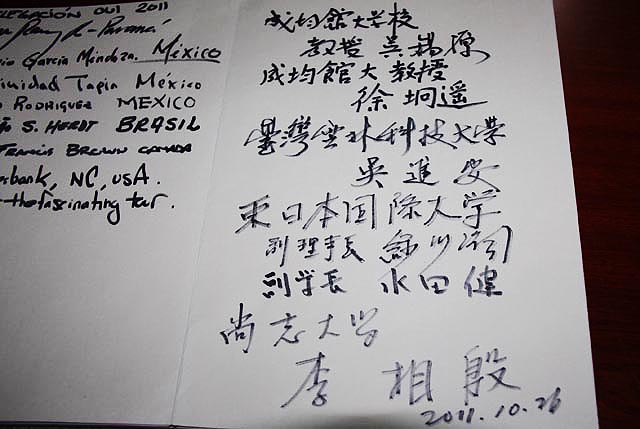 DELEGACIÓN OUI 2011
Panamá
García Mendoza. México
Trinidad Tapia México
RODRIGUEZ MEXICO
S. HERDT BRASIL
FRANCIS BROWN CANADA
bank, NC, USA.
the fascinating tour.
成均館大学校
教授 吳錫源
成均館大 教授
徐坰遥
臺灣雲林科技大学
吳進安
東日本国際大学
副理事長 緑川
副学長 水田健
尚志大学
李相殷
2011.10.26